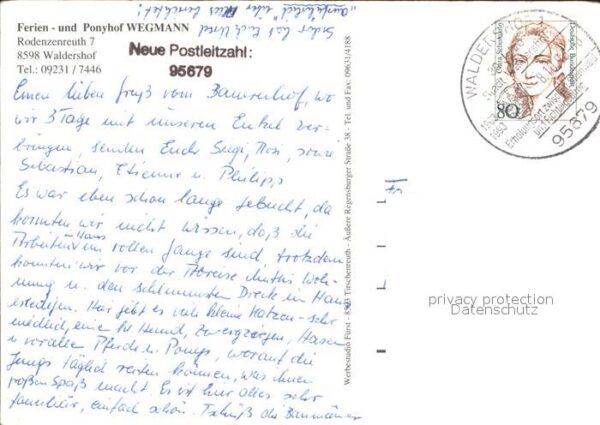 "ausführlich" über Alles berichtet!
Ferien - und Ponyhof WEGMANN
Rodenzenreuth 7
8598 Waldershof
Tel.: 09231 / 7446
Neue Postleitzahl:
95679
Einen lieben Gruß vom Bauernhof, wo
wir 3 Tage mit unseren Enkel ver-
bringen, senden Euch Sugi, Rosi, sowie
Sebastian, Etienne u. Philipp,
Es war eben schon lange gebucht, da
konnten wir nicht wissen, daß die
Arbeiten im Haus vollen Gange sind, trotzdem
konnten wir vor der Abreise Mutti's Woh-
nung u. den schlimmsten Dreck im Haus
erledigen. Hier gibt es viele kleine Katzen - sehr
niedlich, eine Hund, Zwergziegen, Hasen
u. vorallem Pferde u. Ponys, worauf die
Jungs täglich reiten können, was ihnen
großen Spaß macht. Es ist hier alles sehr
familiär, einfach schön. Tschüß die
Werbestudio Fürst - 8593 Tirschenreuth - Äußere Regensburger Straße 38 - Tel. und Fax: 09631/4188
WALDERSHOF 1
95679
80
privacy protection
Datenschutz